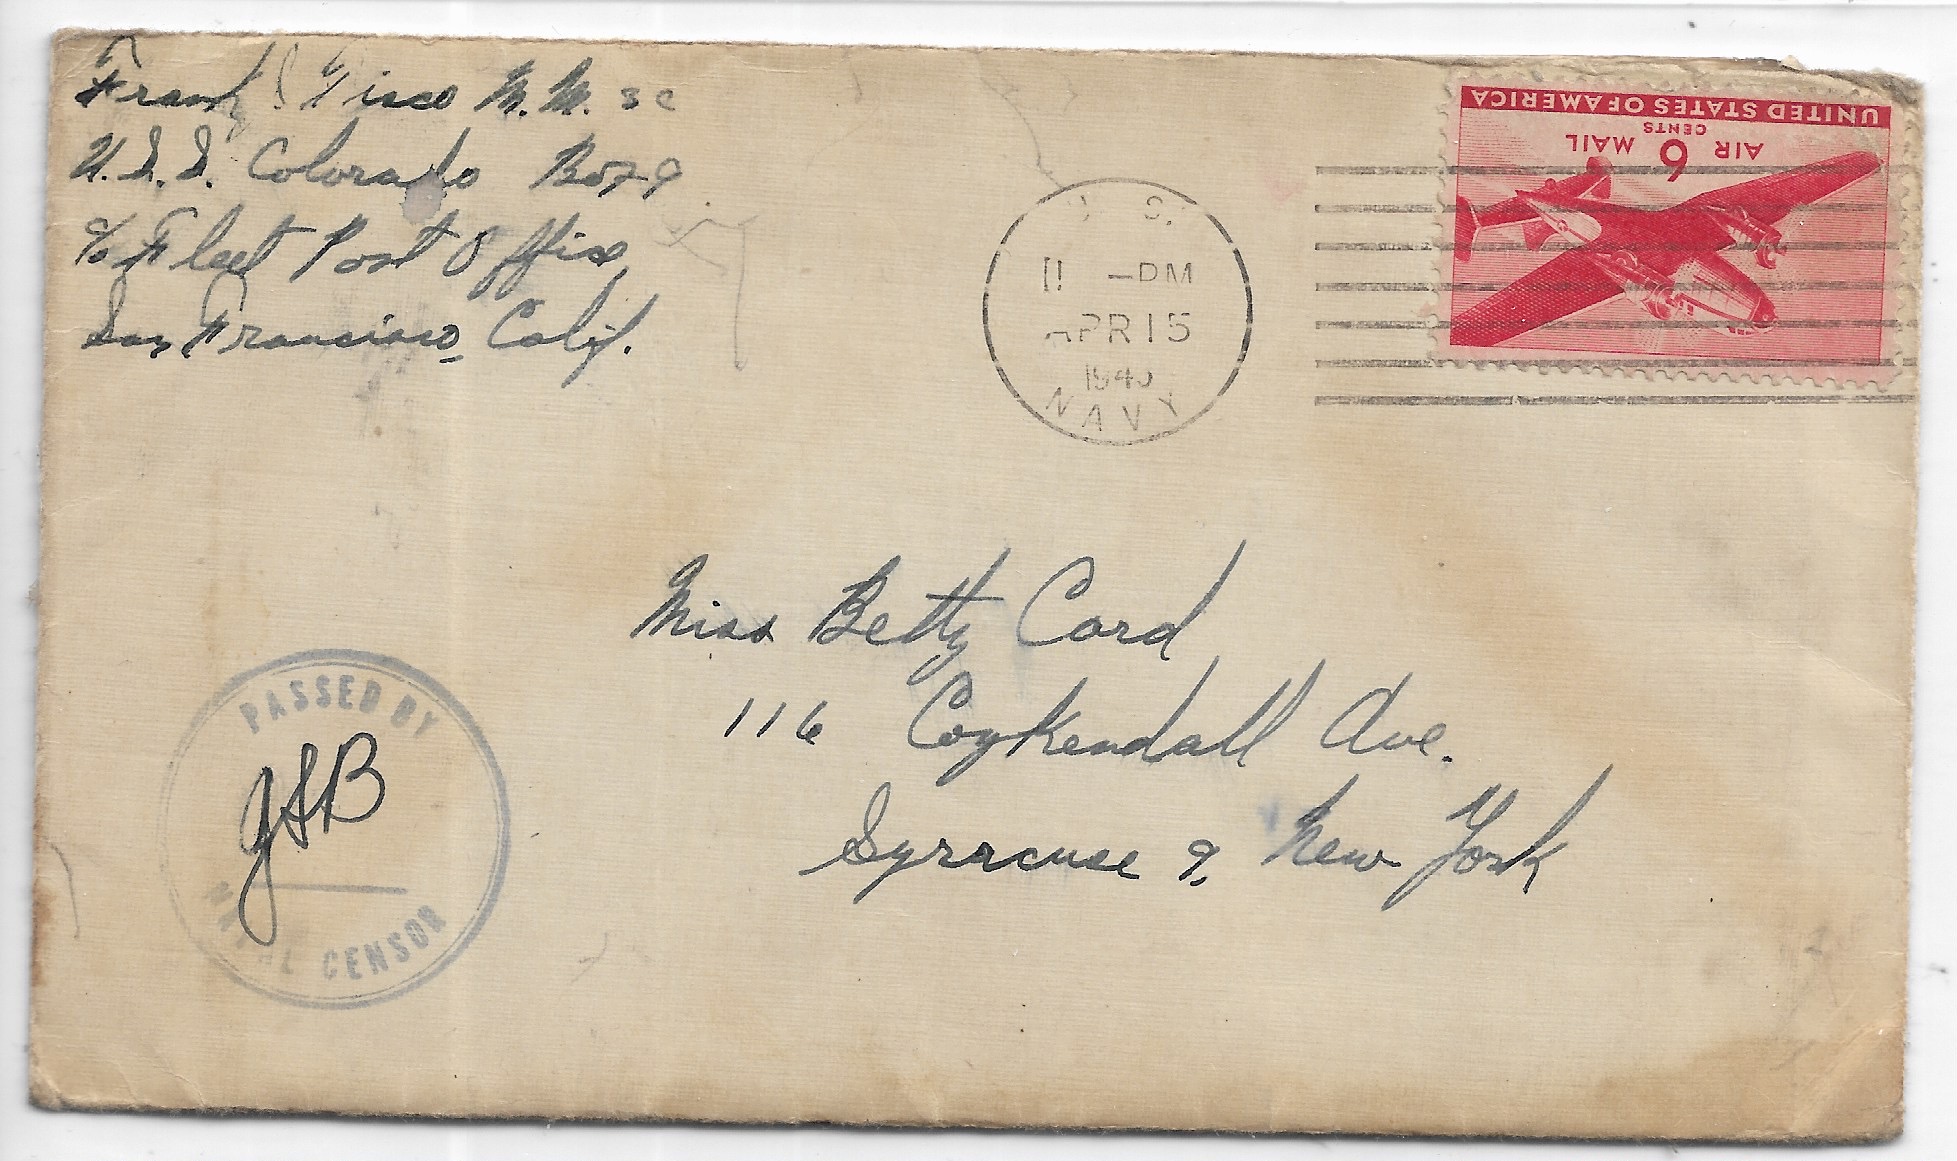 Frank J Gisco M.M. 3c
U.S.S. Colorado Box 9
c/o Fleet Post Office
San Francisco, Calif.
UNITED STATES OF AMERICA
AIR 6 MAIL
CENTS
U. S.
11 -PM
APR 15
NAVY
Miss Betty Card
116 Coykendall Ave.
Syracuse 9, New York
PASSED BY
JSB
NAVAL CENSOR